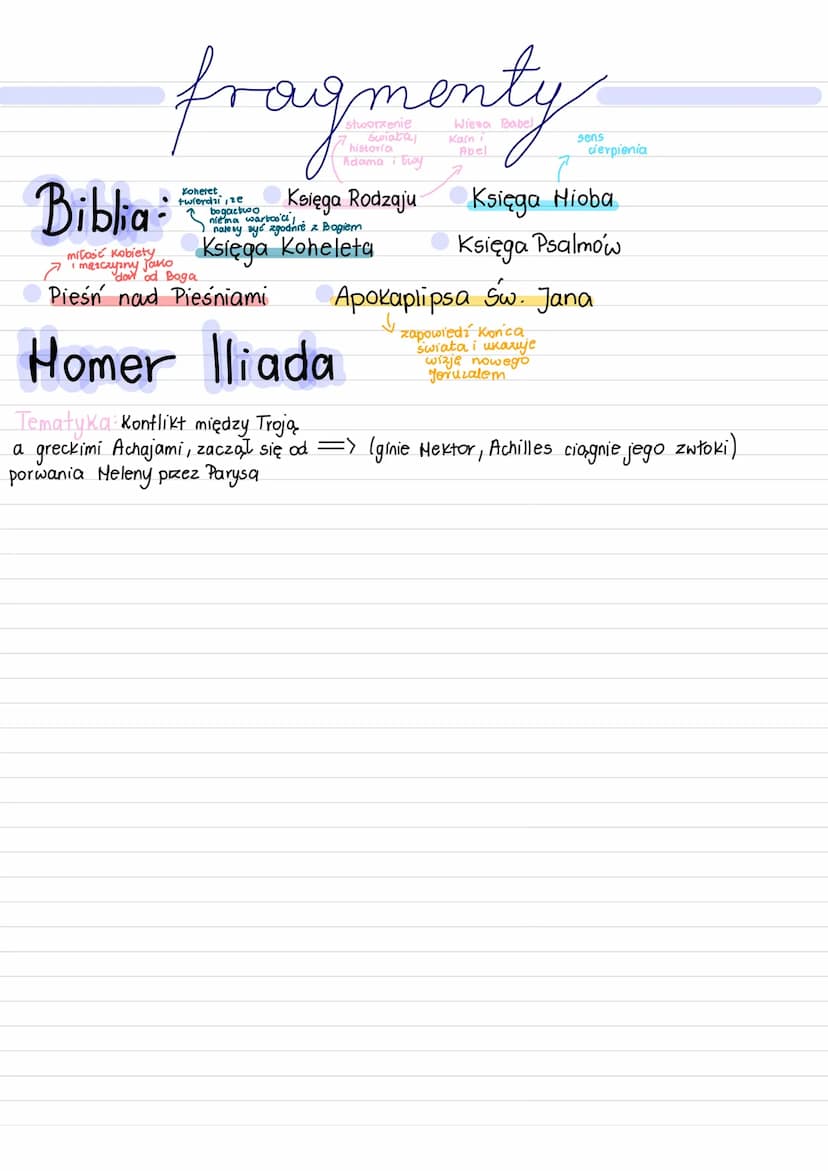 fragmenty
stworzenie
świata,
historia
Adama i Ewy
Wieża Babel
Kain i
Abel
sens
cierpienia
Biblia:
Kohelet
twierdzi, że
bogactwo
nie ma wartości,
należy żyć zgodnie z Bogiem
Księga Rodzaju
Księga Hioba
Księga Koheleta
Księga Psalmów
miłość kobiety
i mężczyzny jako
dar od Boga
Pieśń nad Pieśniami
Apokaplipsa Św. Jana
zapowiedź końca
świata i ukazuje
wizję nowego
Jeruzalem
Homer Iliada
Tematyka: Konflikt między Troją
a greckimi Achajami, zaczął się od => (ginie Hektor, Achilles ciągnie jego zwłoki)
porwania Heleny przez Parysa